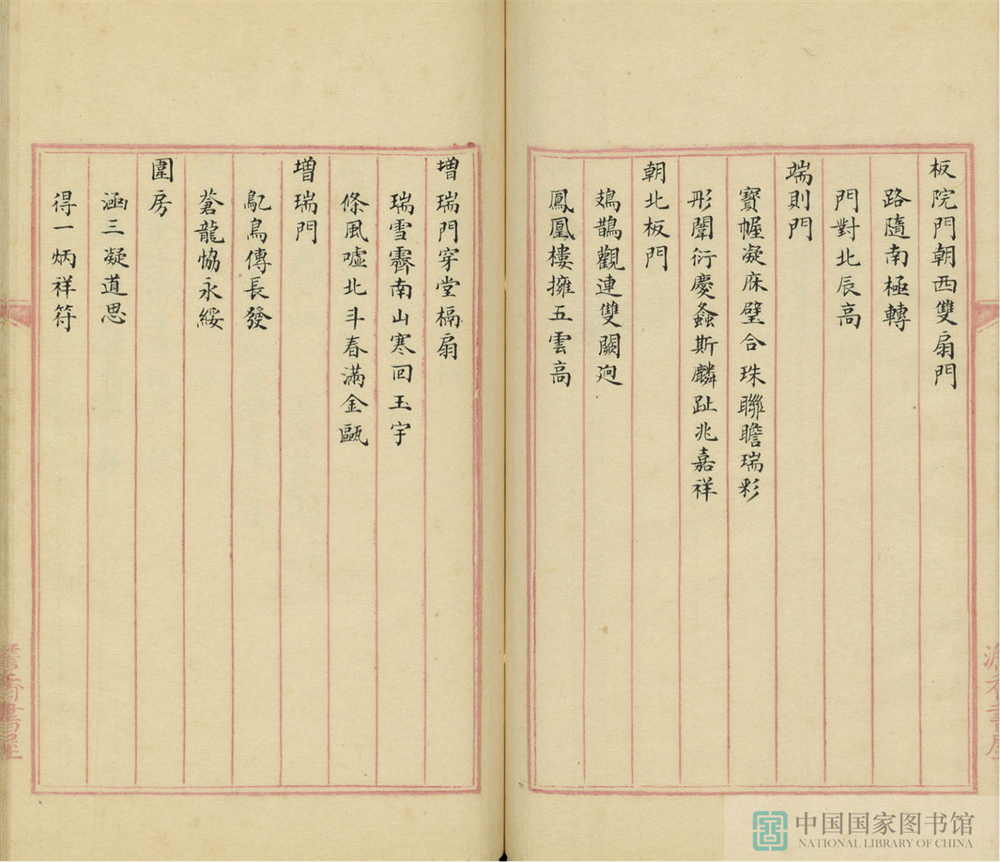 板院門朝西雙扇門
路隨南極轉
門對北辰高
端則門
寶幄凝庥璧合珠聯瞻瑞彩
彤闈衍慶螽斯麟趾兆嘉祥
朝北板門
鳷鵲觀連雙闕迥
鳳凰樓擁五雲高
增瑞門穿堂槅扇
瑞雪霽南山寒回玉宇
條風噓北斗春滿金甌
增瑞門
鳦鳥傳長發
蒼龍恊永綏
圍房
涵三凝道思
得一炳祥符
中国国家图书馆
NATIONAL LIBRARY OF CHINA